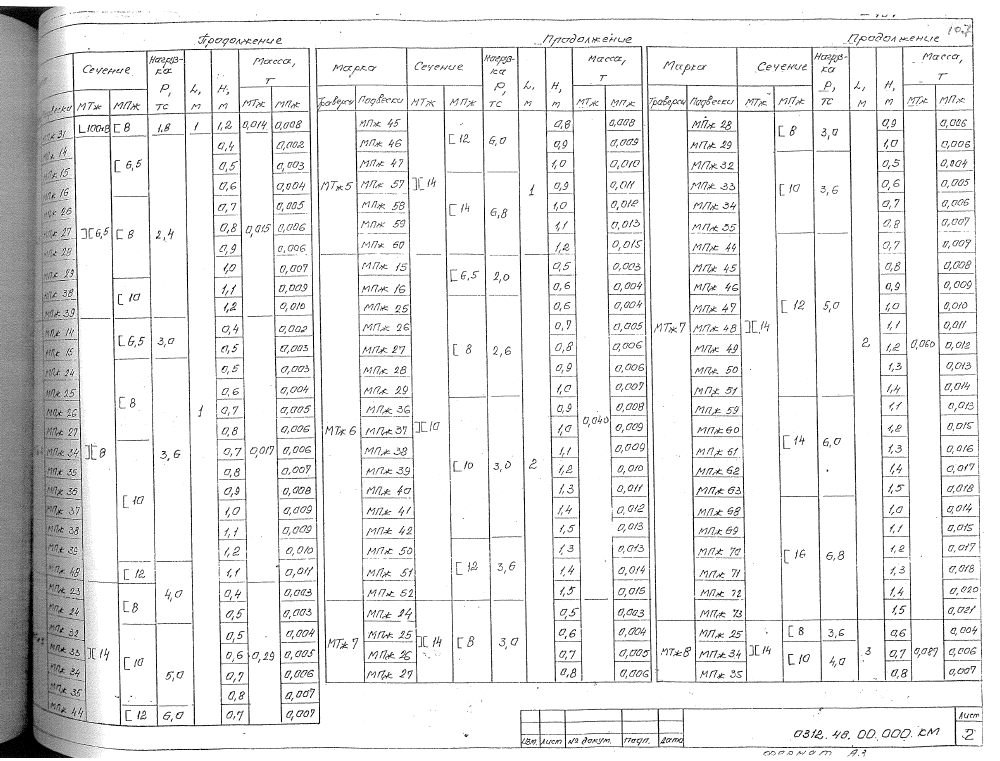 107
Продолжение
Сечение Нагрузка Р, тс L, м H, м Масса, т
Подвески МТж МПж МТж МПж
МПж 31 L100×8 [8 1,8 1 1,2 0,014 0,008
МПж 14 ][6,5 [6,5 2,4 0,4 0,015 0,002
МПж 15 0,5 0,003
МПж 16 0,6 0,004
МПж 26 [8 0,7 0,005
МПж 27 0,8 0,006
МПж 28 0,9 0,006
МПж 29 1,0 0,007
МПж 38 [10 1,1 0,009
МПж 39 1,2 0,010
МПж 14 ][8 [6,5 3,0 1 0,4 0,017 0,002
МПж 15 0,5 0,003
МПж 24 [8 3,6 0,5 0,003
МПж 25 0,6 0,004
МПж 26 0,7 0,005
МПж 27 0,8 0,006
МПж 34 [10 0,7 0,006
МПж 35 0,8 0,007
МПж 36 0,9 0,008
МПж 37 1,0 0,009
МПж 38 1,1 0,009
МПж 39 1,2 0,010
МПж 48 [12 1,1 0,011
МПж 23 ][14 [8 4,0 0,4 0,29 0,003
МПж 24 0,5 0,003
МПж 32 [10 5,0 0,5 0,004
МПж 33 0,6 0,005
МПж 34 0,7 0,006
МПж 35 0,8 0,007
МПж 44 [12 6,0 0,7 0,007
Продолжение
Марка Сечение Нагрузка Р, тс L, м H, м Масса, т
Траверсы Подвески МТж МПж МТж МПж
МТж 5 МПж 45 ][14 [12 6,0 1 0,8 0,008
МПж 46 0,9 0,009
МПж 47 1,0 0,010
МПж 57 [14 6,8 0,9 0,011
МПж 58 1,0 0,012
МПж 59 1,1 0,013
МПж 60 1,2 0,015
МТж 6 МПж 15 ][10 [6,5 2,0 2 0,5 0,040 0,003
МПж 16 0,6 0,004
МПж 25 [8 2,6 0,6 0,004
МПж 26 0,7 0,005
МПж 27 0,8 0,006
МПж 28 0,9 0,006
МПж 29 1,0 0,007
МПж 36 [10 3,0 0,9 0,008
МПж 37 1,0 0,009
МПж 38 1,1 0,009
МПж 39 1,2 0,010
МПж 40 1,3 0,011
МПж 41 1,4 0,012
МПж 42 1,5 0,013
МПж 50 [12 3,6 1,3 0,013
МПж 51 1,4 0,014
МПж 52 1,5 0,015
МТж 7 МПж 24 ][14 [8 3,0 0,5 0,003
МПж 25 0,6 0,004
МПж 26 0,7 0,005
МПж 27 0,8 0,006
Продолжение
Марка Сечение Нагрузка Р, тс L, м H, м Масса, т
Траверсы Подвески МТж МПж МТж МПж
МТж 7 МПж 28 ][14 [8 3,0 2 0,9 0,060 0,006
МПж 29 1,0 0,006
МПж 32 [10 3,6 0,5 0,004
МПж 33 0,6 0,005
МПж 34 0,7 0,006
МПж 35 0,8 0,007
МПж 44 [12 5,0 0,7 0,007
МПж 45 0,8 0,008
МПж 46 0,9 0,009
МПж 47 1,0 0,010
МПж 48 1,1 0,011
МПж 49 1,2 0,012
МПж 50 1,3 0,013
МПж 51 1,4 0,014
МПж 59 [14 6,0 1,1 0,013
МПж 60 1,2 0,015
МПж 61 1,3 0,016
МПж 62 1,4 0,017
МПж 63 1,5 0,018
МПж 68 [16 6,8 1,0 0,014
МПж 69 1,1 0,015
МПж 70 1,2 0,017
МПж 71 1,3 0,018
МПж 72 1,4 0,020
МПж 73 1,5 0,021
МТж 8 МПж 25 ][14 [8 3,6 3 0,6 0,087 0,004
МПж 34 [10 4,0 0,7 0,006
МПж 35 0,8 0,007
Изм. Лист № докум. Подп. Дата
0312.48.00.000.КМ
Лист
2
Формат А3